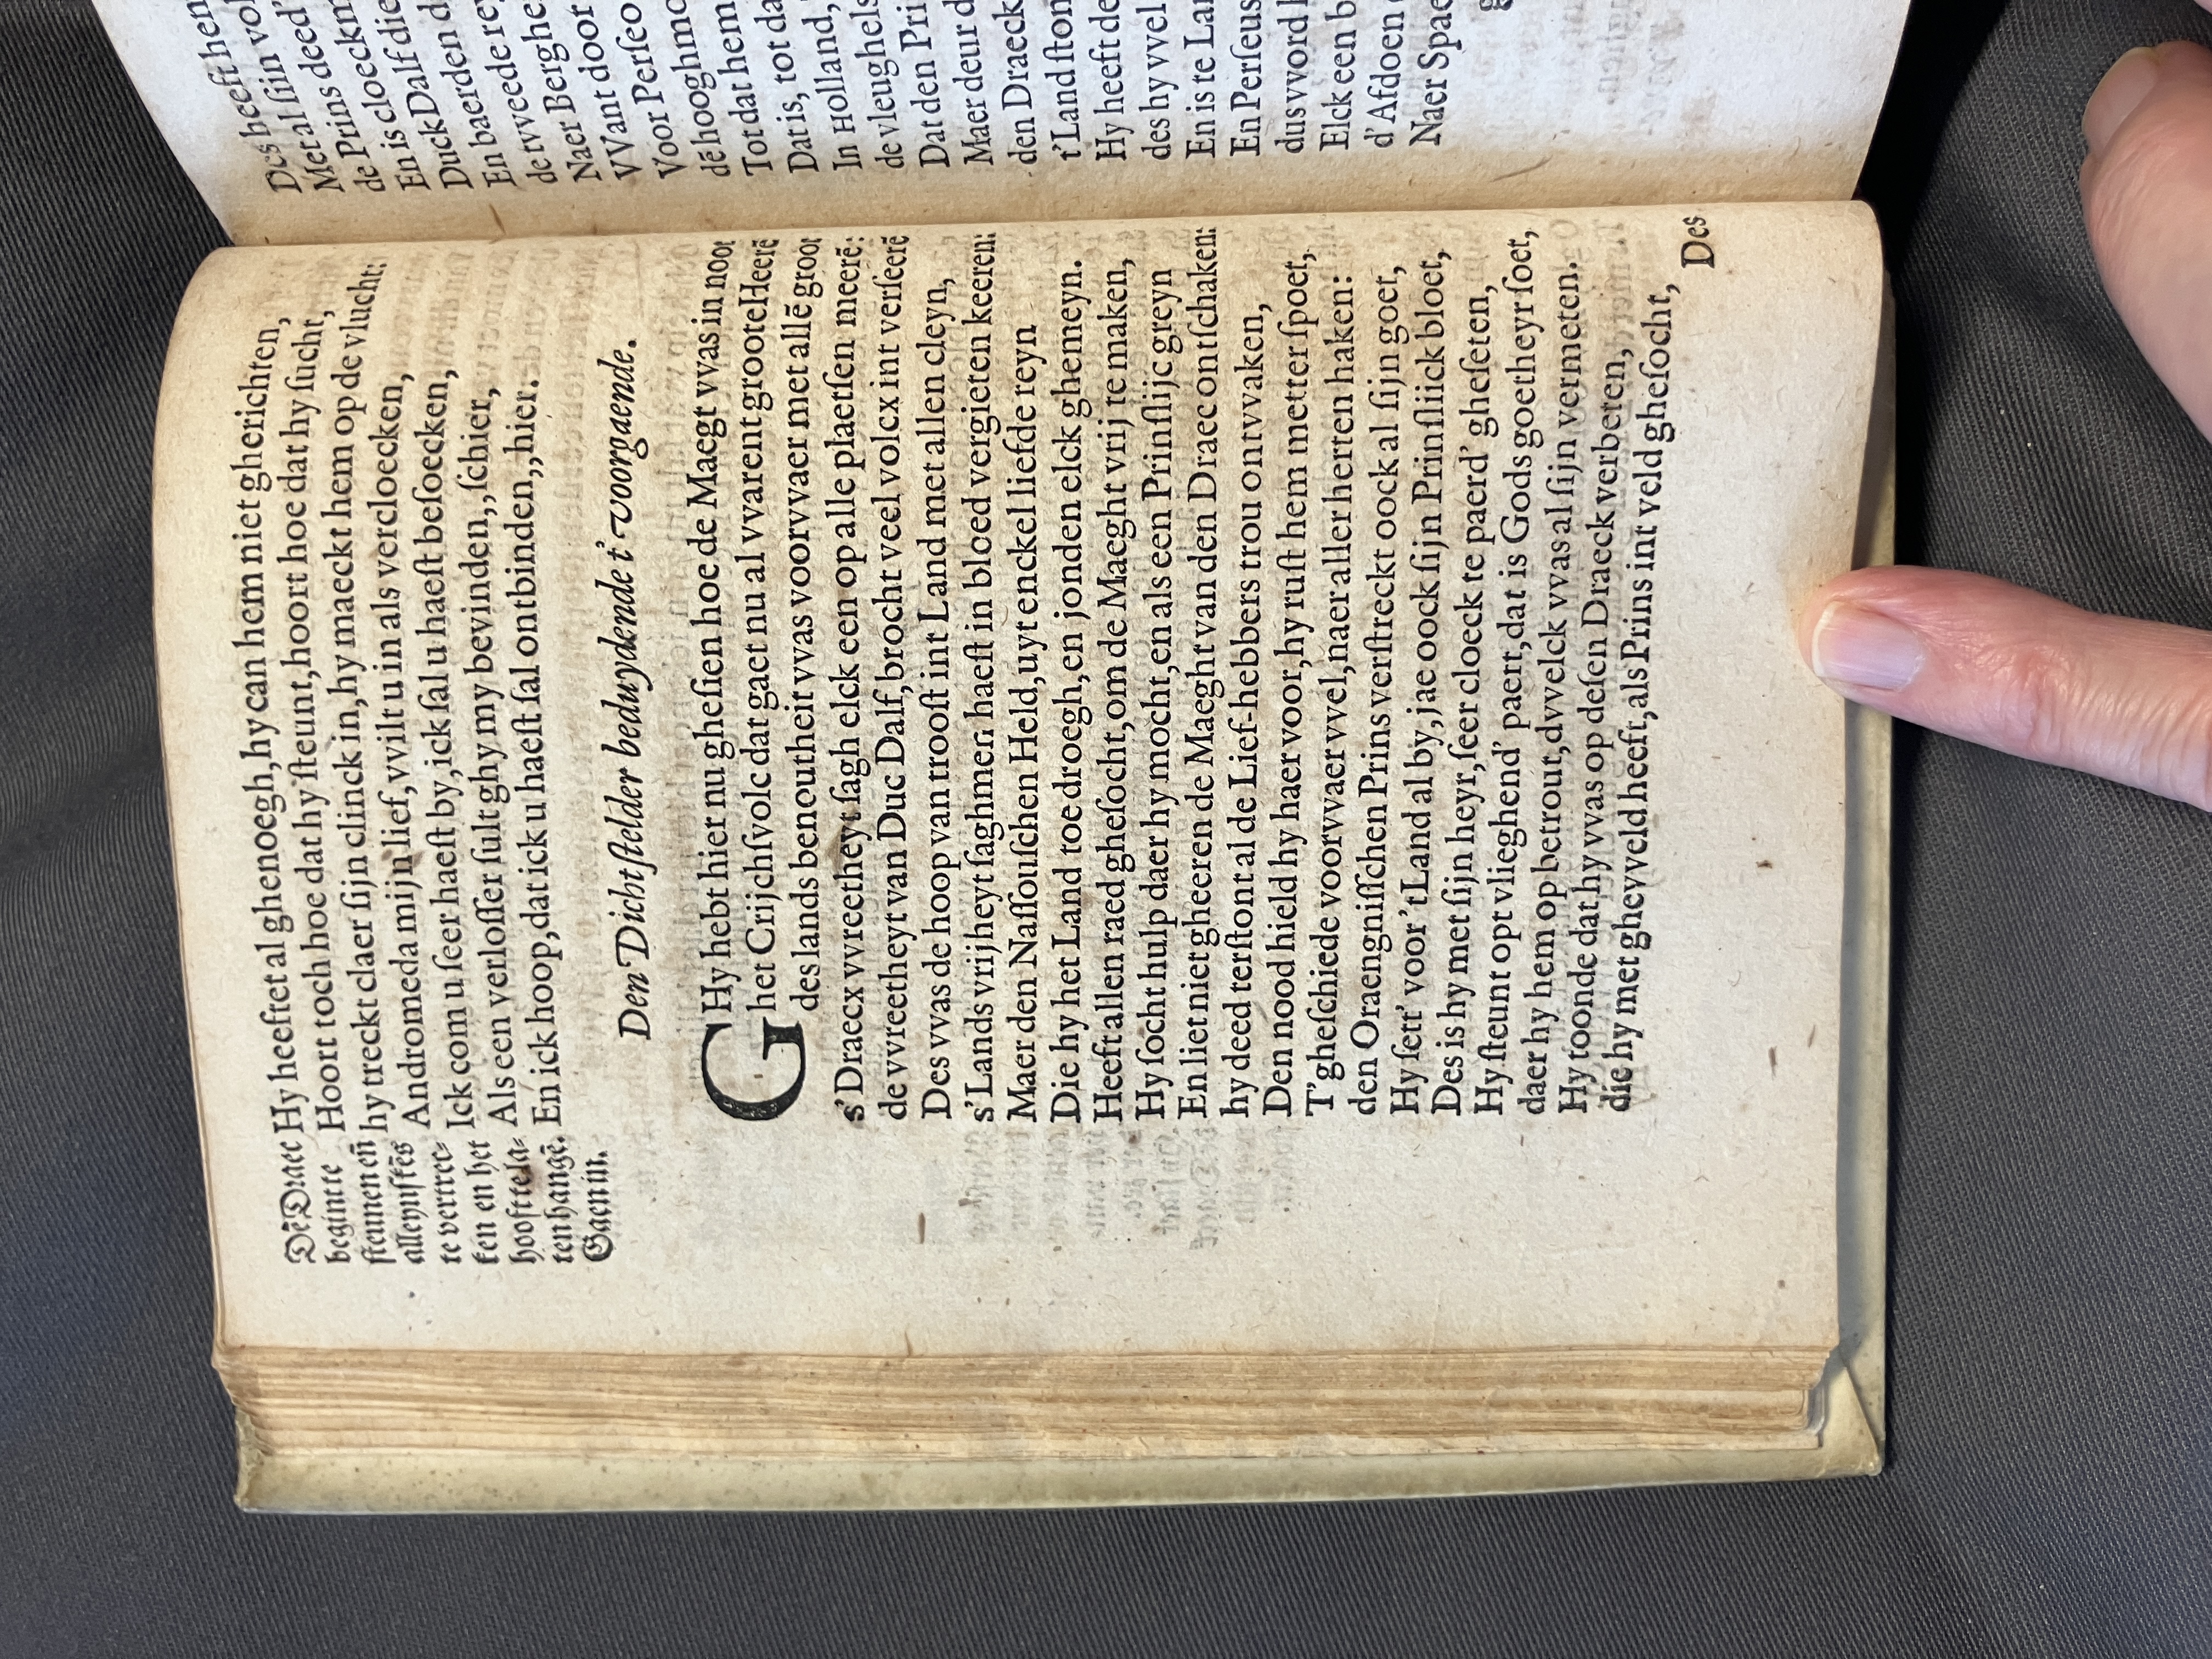 Dē Draec
beginnt te
steunen eñ
alleynskēs
te vertrec-
ken en het
hooft te la-
ten hangē.
Gaen in.
Hy heeftet al ghenoegh, hy can hem niet gherichten,
Hoort toch hoe dat hy ſteunt, hoort hoe dat hy ſucht,
hy treckt claer ſijn clinck in, hy maeckt hem op de vlucht:
Andromeda mijn lief, vvilt u in als vercloecken,
Ick com u ſeer haeſt by, ick ſal u haeſt beſoecken,
Als een verloſſer ſult ghy my bevinden,, ſchier,
En ick hoop, dat ick u haeſt ſal ontbinden,, hier.
Den Dichtſtelder beduydende t' voorgaende.
GHy hebt hier nu gheſien hoe de Maegt vvas in noot
het Crijchſvolc dat gaet nu al vvarent groote Heerē
des lands benoutheit vvas voorvvaer met allē groot
s'Draecx vvreetheyt ſagh elck een op alle plaetſen meerē:
de vvreetheyt van Duc Dalf, brocht veel volcx int verſeerē
Des vvas de hoop van trooſt int Land met allen cleyn,
s'Lands vrijheyt ſaghmen haeſt in bloed vergieten keeren:
Maer den Naſſouſchen Held, uyt enckel liefde reyn
Die hy het Land toedroegh, en jonden elck ghemeyn.
Heeft allen raed gheſocht, om de Maeght vrij te maken,
Hy ſocht hulp daer hy mocht, en als een Prinſlijc greyn
En liet niet gheeren de Maeght van den Draec ontſchaken:
hy deed terſtont al de Lief-hebbers trou ontvvaken,
Den nood hield hy haer voor, hy ruſt hem metter ſpoet,
T'gheſchiede voorvvaer vvel, naer aller herten haken:
den Oraengniſſchen Prins verſtreckt oock al ſijn goet,
Hy ſett' voor 'tLand al by, jae oock ſijn Prinſliick bloet,
Des is hy met ſijn heyr, ſeer cloeck te paerd' gheſeten,
Hy ſteunt opt vlieghend' paert, dat is Gods goetheyr ſoet,
daer hy hem op betrout, dvvelck vvas al ſijn vermeten.
Hy toonde dat hy vvas op deſen Draeck verbeten,
die hy met ghevveld heeft, als Prins int veld gheſocht,
Des
Des heeft hen
Met al ſiin vol
de Prins deed'
En is cloeckm
Duck Dalf die
En baerden d
de tvveede rey
Naer Berghe
VVant door
Voor Perſeo
dē hooghmo
Tot dat hem
Dat is, tot da
In Holland,
de vleughels
Dat den Pri
Maer deur d
den Draeck
t'Land ſton
Hy heeft de
des hy vvel
En is te Lan
En Perſeus
dus vvord
Elck een b
d'Afdoen
Naer Spae